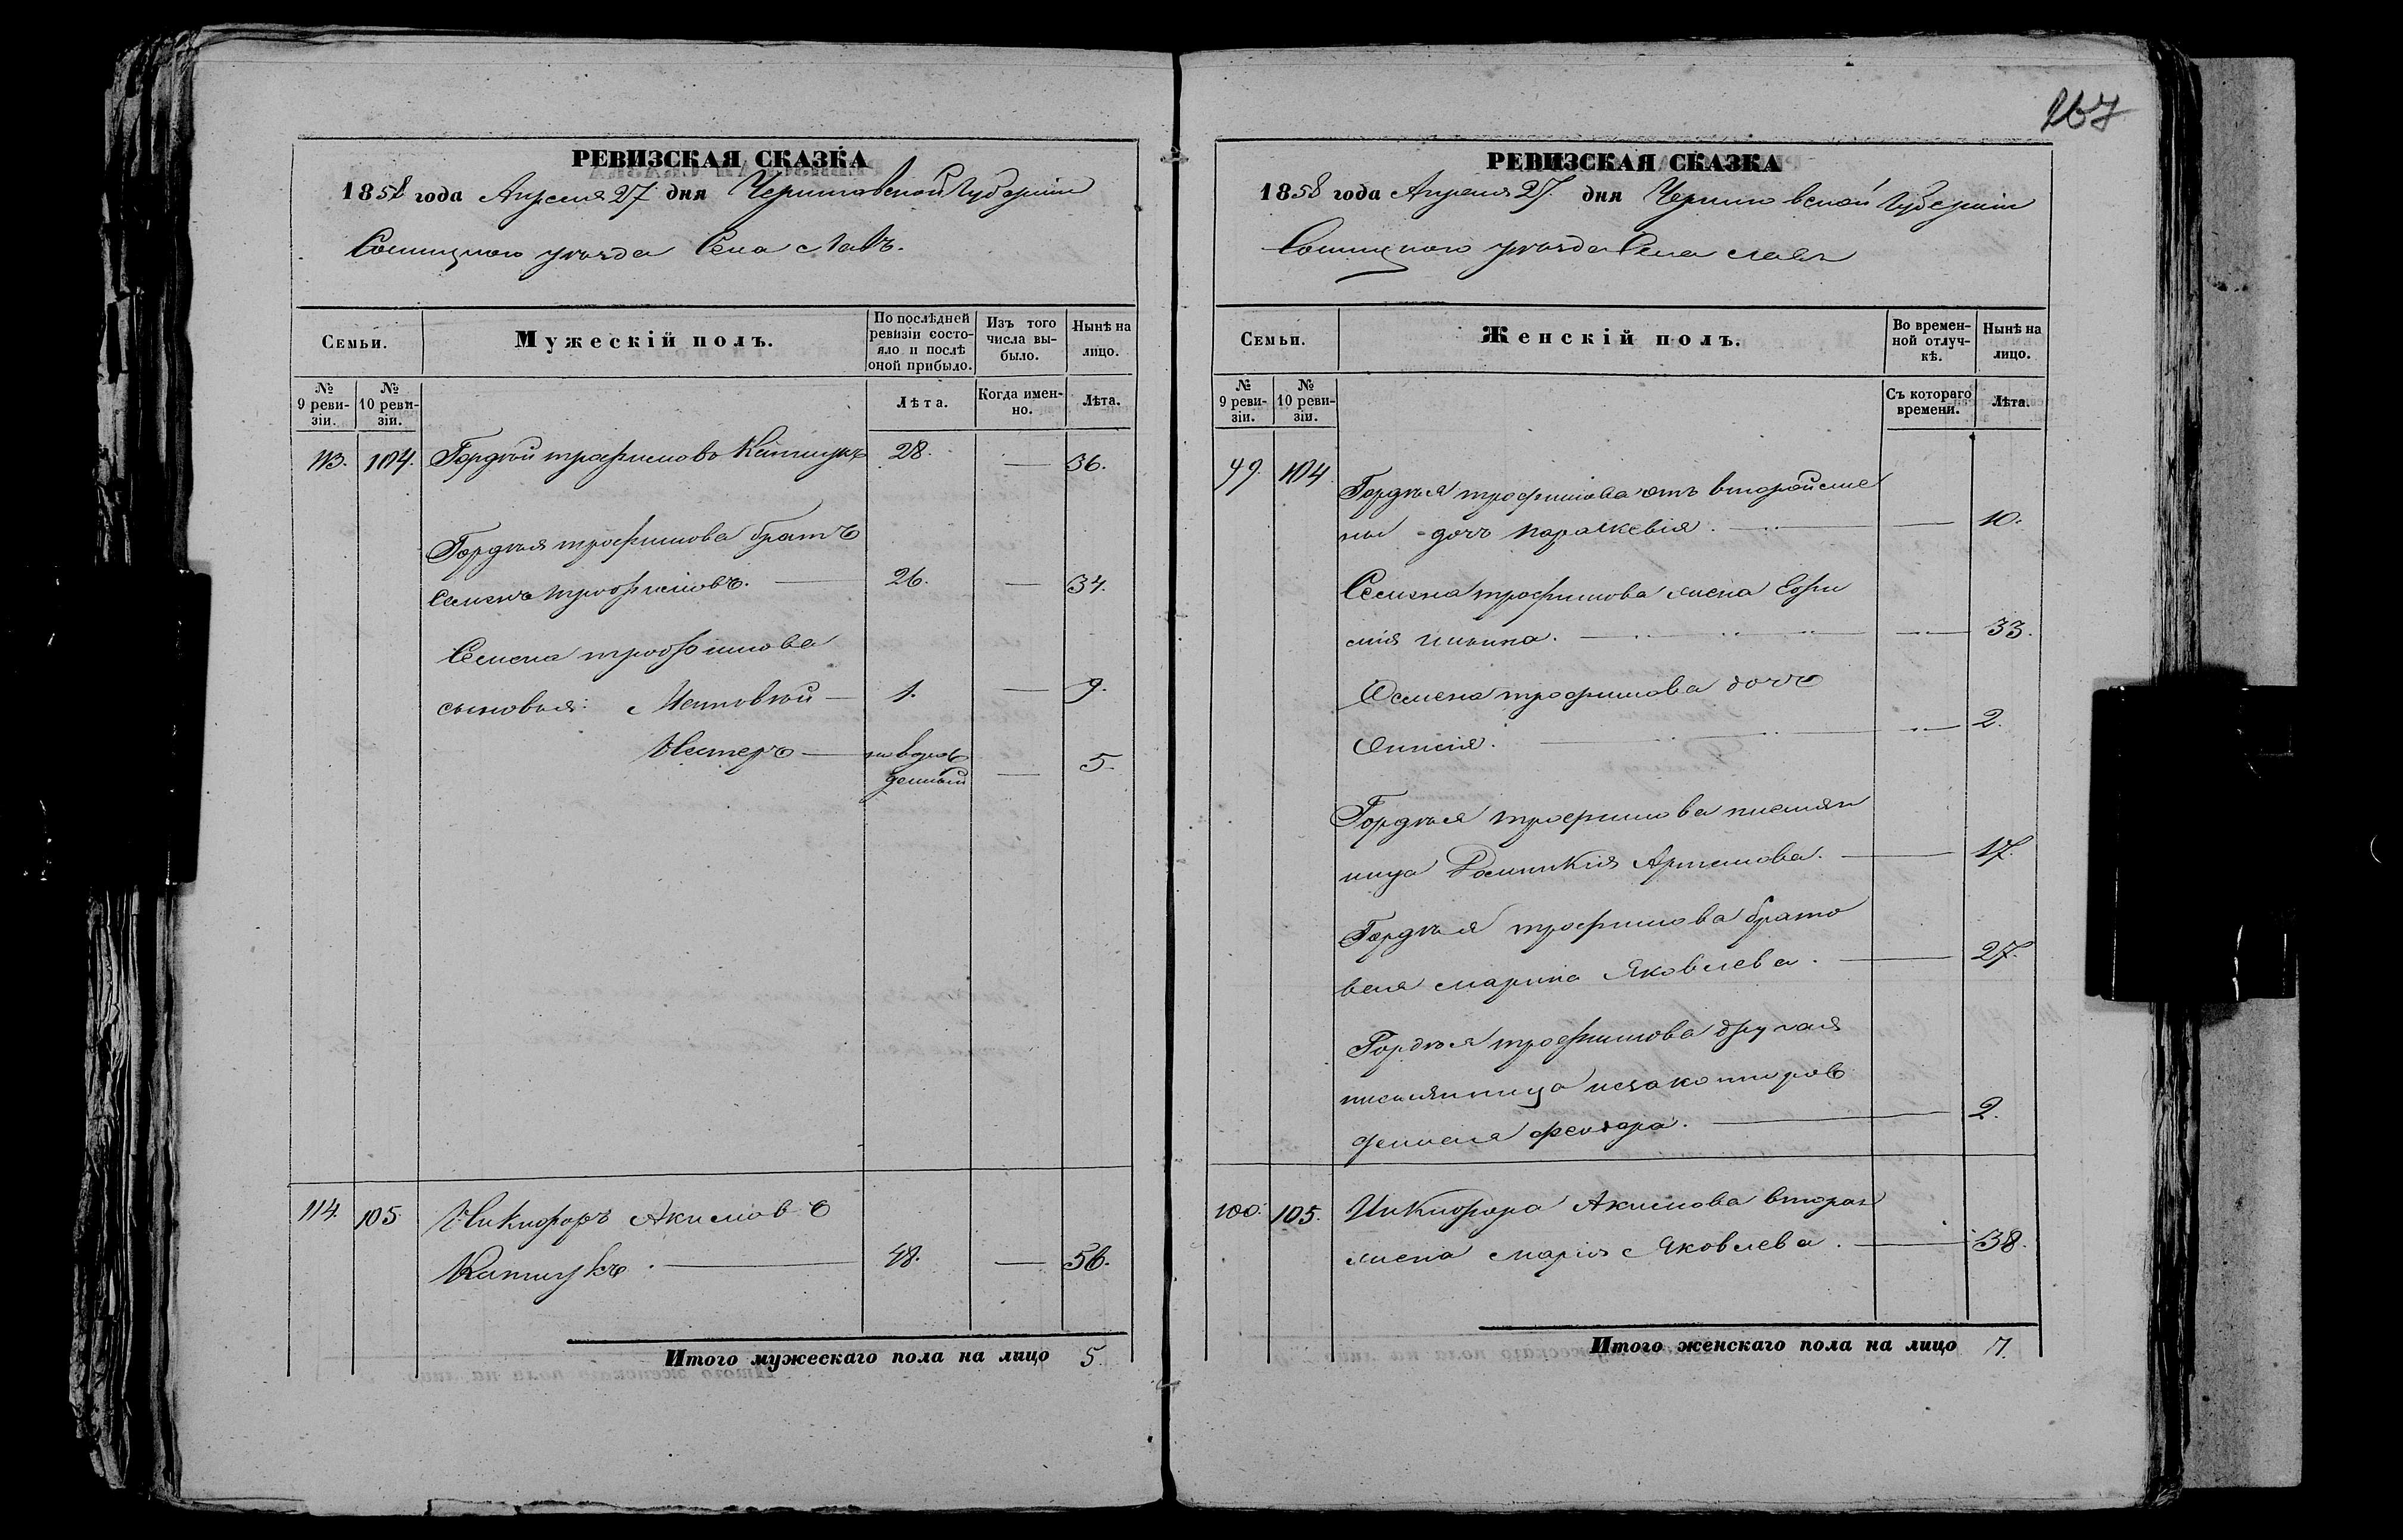 267
РЕВИЗСКАЯ СКАЗКА
1858 года Апреля 27 дня Черниговской Губерніи
Сосницкого уѣзда Села Лавъ.
Семьи.
Мужескій полъ.
По послѣдней ревизіи состояло и послѣ оной прибыло.
Изъ того числа выбыло.
Нынѣ на лицо.
№ 9 ревизіи.
№ 10 ревизіи.
Лѣта.
Когда именно.
Лѣта.
113. 104. Гордѣй Трофимовъ 28. — 36.
Гордѣя Трофимова братъ
Семенъ Трофимовъ. — 26. — 34.
Семена Трофимова
сыновья: — 1. — 9.
Нестеръ — новорож
денный — 5.
114. 105. Никифоръ Акимовъ
48. — 56.
Итого мужескаго пола на лицо 5.
РЕВИЗСКАЯ СКАЗКА
1858 года Апреля 27. дня Черниговской Губерніи
Сосницкого уѣзда Села Лавъ
Семьи.
Женскій полъ.
Во временной отлучкѣ.
Нынѣ на лицо.
№ 9 ревизіи.
№ 10 ревизіи.
Съ котораго времени.
Лѣта.
99. 104. Гордѣя Трофимова отъ второй же
ны дочь Параскевія. — 10.
Семена Трофимова жена Ефи
мія — 33.
Семена Трофимова дочь
— 2.
Гордѣя Трофимова племян
ница Артемова. — 17.
Гордѣя Трофимова брато
вая Марина Яковлева. — 27.
Гордѣя Трофимова другая
племянница незаконнорож
денная — 2.
100. 105. Никифора Акимова вторая
жена Марія Яковлева. — 38.
Итого женскаго пола на лицо 7.